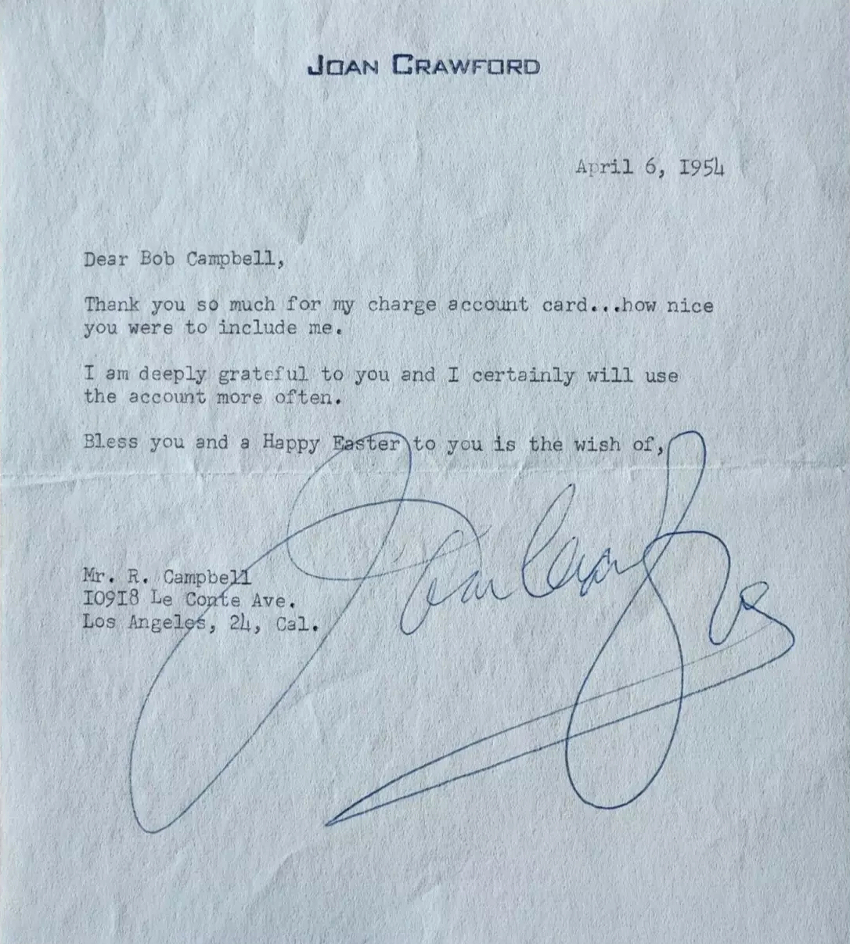 JOAN CRAWFORD
April 6, 1954
Dear Bob Campbell,
Thank you so much for my charge account card...how nice
you were to include me.
I am deeply grateful to you and I certainly will use
the account more often.
Bless you and a Happy Easter to you is the wish of,
Joan Crawford
Mr. R. Campbell
10918 Le Conte Ave.
Los Angeles, 24, Cal.